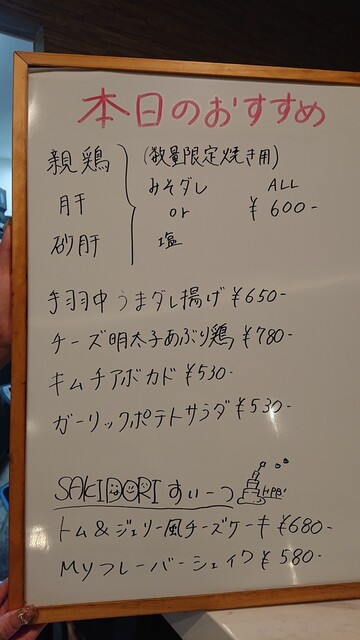 本日のおすすめ
親鶏 (数量限定焼き用)
みそダレ ALL
肝 or ¥600-
砂肝 塩
手羽中うまダレ揚げ ¥650-
チーズ明太子あぶり鶏 ¥780-
キムチアボカド ¥530-
ガーリックポテトサラダ ¥530-
SAKIDORI すいーつ
トム&ジェリー風チーズケーキ ¥680-
Myフレーバーシェイク ¥580-